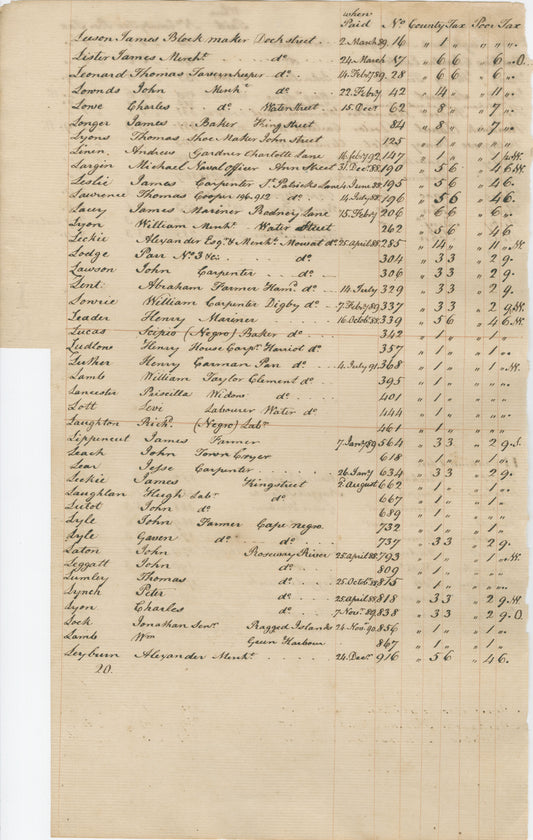 when
Paid No County Tax Poor Tax
Leeson James Block maker Dock street .. 2 March 89. 16 " 1 " " " "
Lister James Mercht. .... do. 24 March 17 " 6 6 " 6 ". O.
Leonard Thomas Tavernkeeper do. . 14 Feby 89. 28 " 6 6 " 6 ".
Lownds John Mercht do. 22 Feby 42 " 14 " " 11 ".
Lowe Charles do. Water Street . 15 Decr 62 " 8 " " 7 ".
Longer James .. Baker King Street 84 " 8 " " 7 ".
Lyons Thomas Shoe Maker John Street 125 " 1 " " " "
Linen. Andrews Gardner Charlotte Lane 16 feby 92. 147 " 1 " " 1 4 N.
Largin Michael Naval officer Ann Street 31 Decr. 88. 190 " 5 6 " 4 6 N.
Leslie James Carpenter St. Patricks Lane 4 June 88. 195 " 5 6 " 4 6.
Lawrence Thomas Cooper 196.912 do. 14 July 88. 196 " 5 6 " 4 6.
Lacey James Mariner Rodney Lane 15 Feby 206 " 6 6 " 6 ".
Lyon William Mercht. Water Street 262 " 5 6 " 4 6
Leckie Alexander Esq. & Mercht. Mowat do. 25 april 88. 285 " 14 " " 11 " N.
Lodge Parr No 3 &c: ... do. 304 " 3 3 " 2 9.
Lawson John Carpenter . . . do. 306 " 3 3 " 2 9.
Lent: Abraham Farmer Ham. do. .. 14 July 329 " 3 3 " 2 9.
Lowrie William Carpenter Digby do. .. 7 Feby 89. 337 " 3 3 " 2 9. N.
Leader Henry Mariner .... 16 Octob. 88. 339 " 5 6 " 4 6. N.
Lucas Scipio (Negro) Baker do. 342 " 1 " " 1 ".
Ludlow Henry House Carpr. Harriot do. 357 " 1 " " 1 ".
Luther Henry Carman Pan do. .. 4 July 91. 368 " 1 " " 1 ". N.
Lamb William Taylor Clement do. 395 " 1 " " " "
Lancester Priscilla Widow do. 401 " 1 " " " "
Lott Levi Labourer Water do. 444 " 1 " " " "
Laughton Richd. (Negro) Labr. 461 " 1 " " 1 "
Lippencut James Farmer 7 Jany 89 564 " 3 3 " 2 9.
Leach John Town Cryer 618 " 1 " " 1 ".
Lear Jesse Carpenter ..... 26 Jany 634 " 3 3 " 2 9.
Leckie James Kingstreet 2 August 662 " 1 " " 1 ".
Laughlan Hugh Labr. do. 667 " 1 " " 1 ".
Lutot John do. 689 " 1 " " " "
Lyle John Farmer Cape negro 732 " 1 " " 1 ".
Lyle Gaven do. do. do. 737 " 3 3 " 2 9.
Laton John Roseway River 25 april 88. 793 " 1 " " 1 ". N.
Leggatt John do. 809 " 1 " " 1 ".
Lumley Thomas do. 25 Octob. 88. 815 " 1 " " " "
Lynch Peter do. .. 25 april 88. 818 " 3 3 " 2 9. N.
Lyon Charles do. .. 7 Novr. 89. 838 " 3 3 " 2 9. O.
Lock Jonathan Senr. Ragged Islands 24 Novr. 90. 856 " 1 " " 1 ".
Lamb Wm Green Harbour 867 " 1 " " 1 ".
Leyburn Alexander Mercht. ..... 24 Decr. 916 " 5 6 " 4 6.
20.